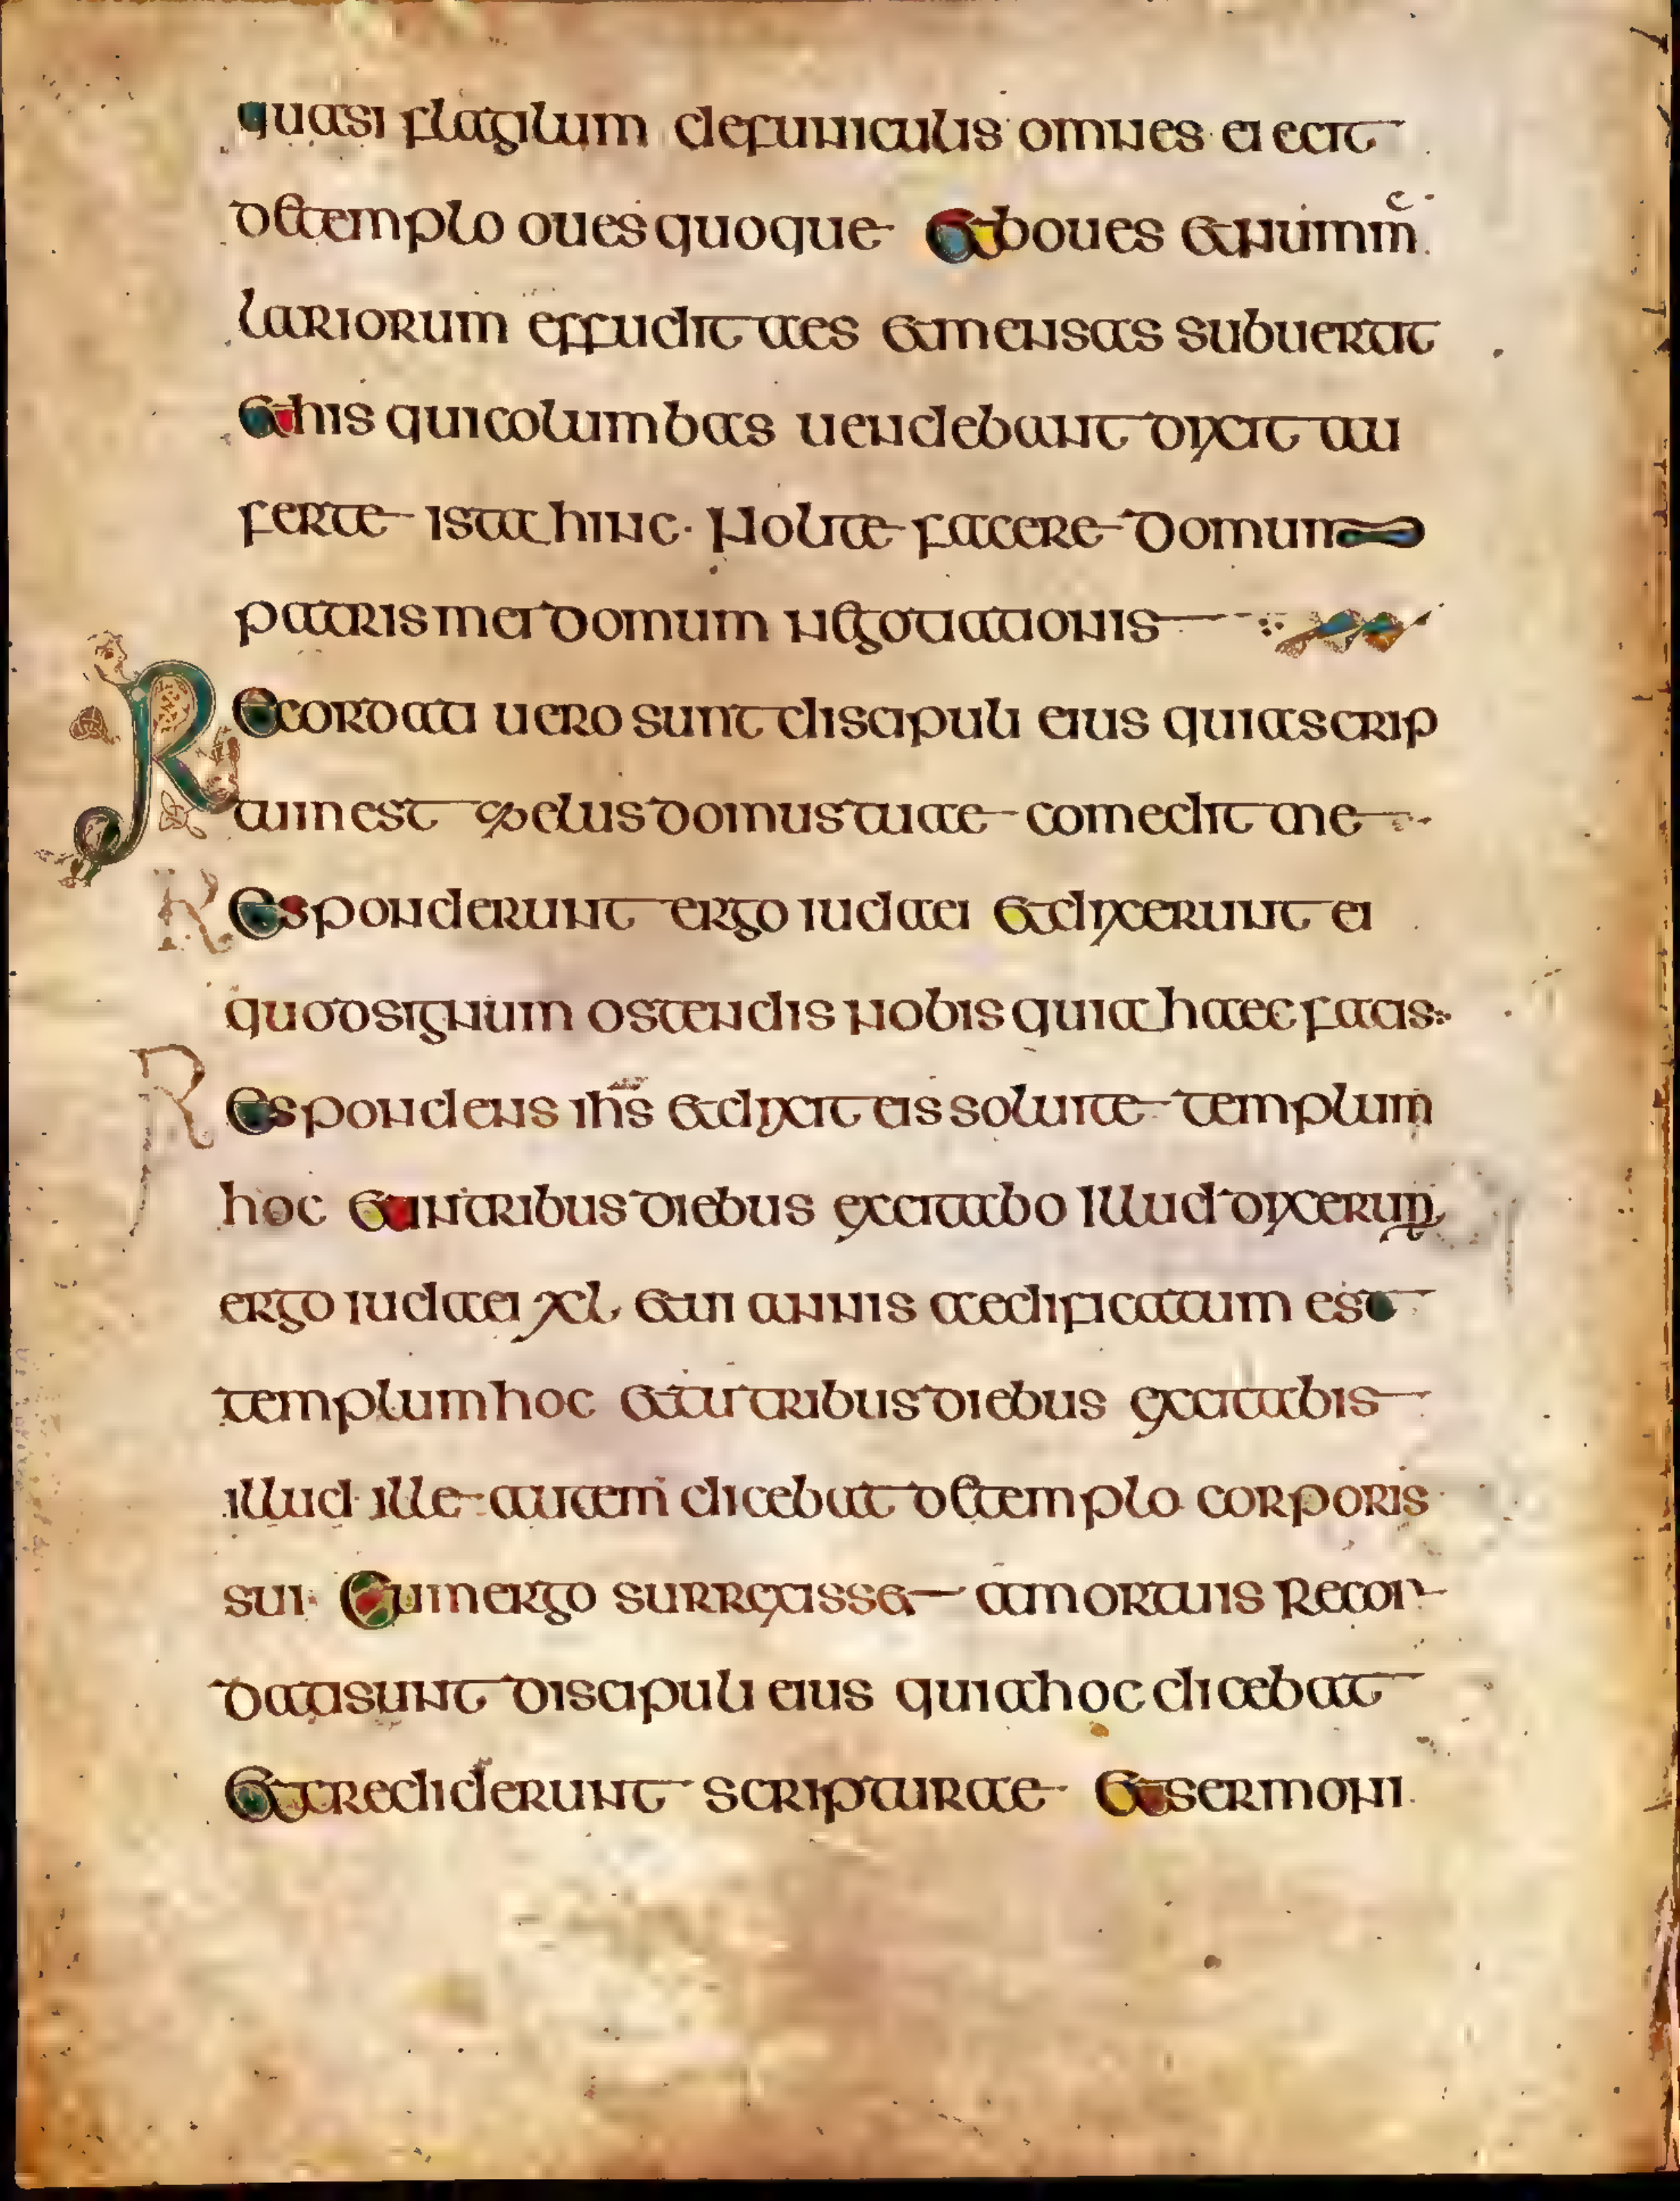 quasi flagilum defuniculis omnes eiecit
detemplo oues quoque & boues & numm
lariorum effudit aes & mensas subuertit
& his qui columbas uendebant dixit au
ferte ista hinc · Nolite facere domum
patris mei domum negotiationis
Recordati uero sunt discipuli eius quia scrip
tum est zelus domus tuae comedit me
Responderunt ergo iudaei & dixerunt ei
quod signum ostendis nobis quia haec facis
Respondens ihs & dixit eis soluite templum
hoc & in tribus diebus excitabo illud dixerunt
ergo iudaei xl & ui annis aedificatum est
templum hoc & tu tribus diebus excitabis
illud ille autem dicebat de templo corporis
sui · Cum ergo surrexiss& amortuis Recor
dati sunt discipuli eius quia hoc dicebat
& crediderunt scripturae & sermoni